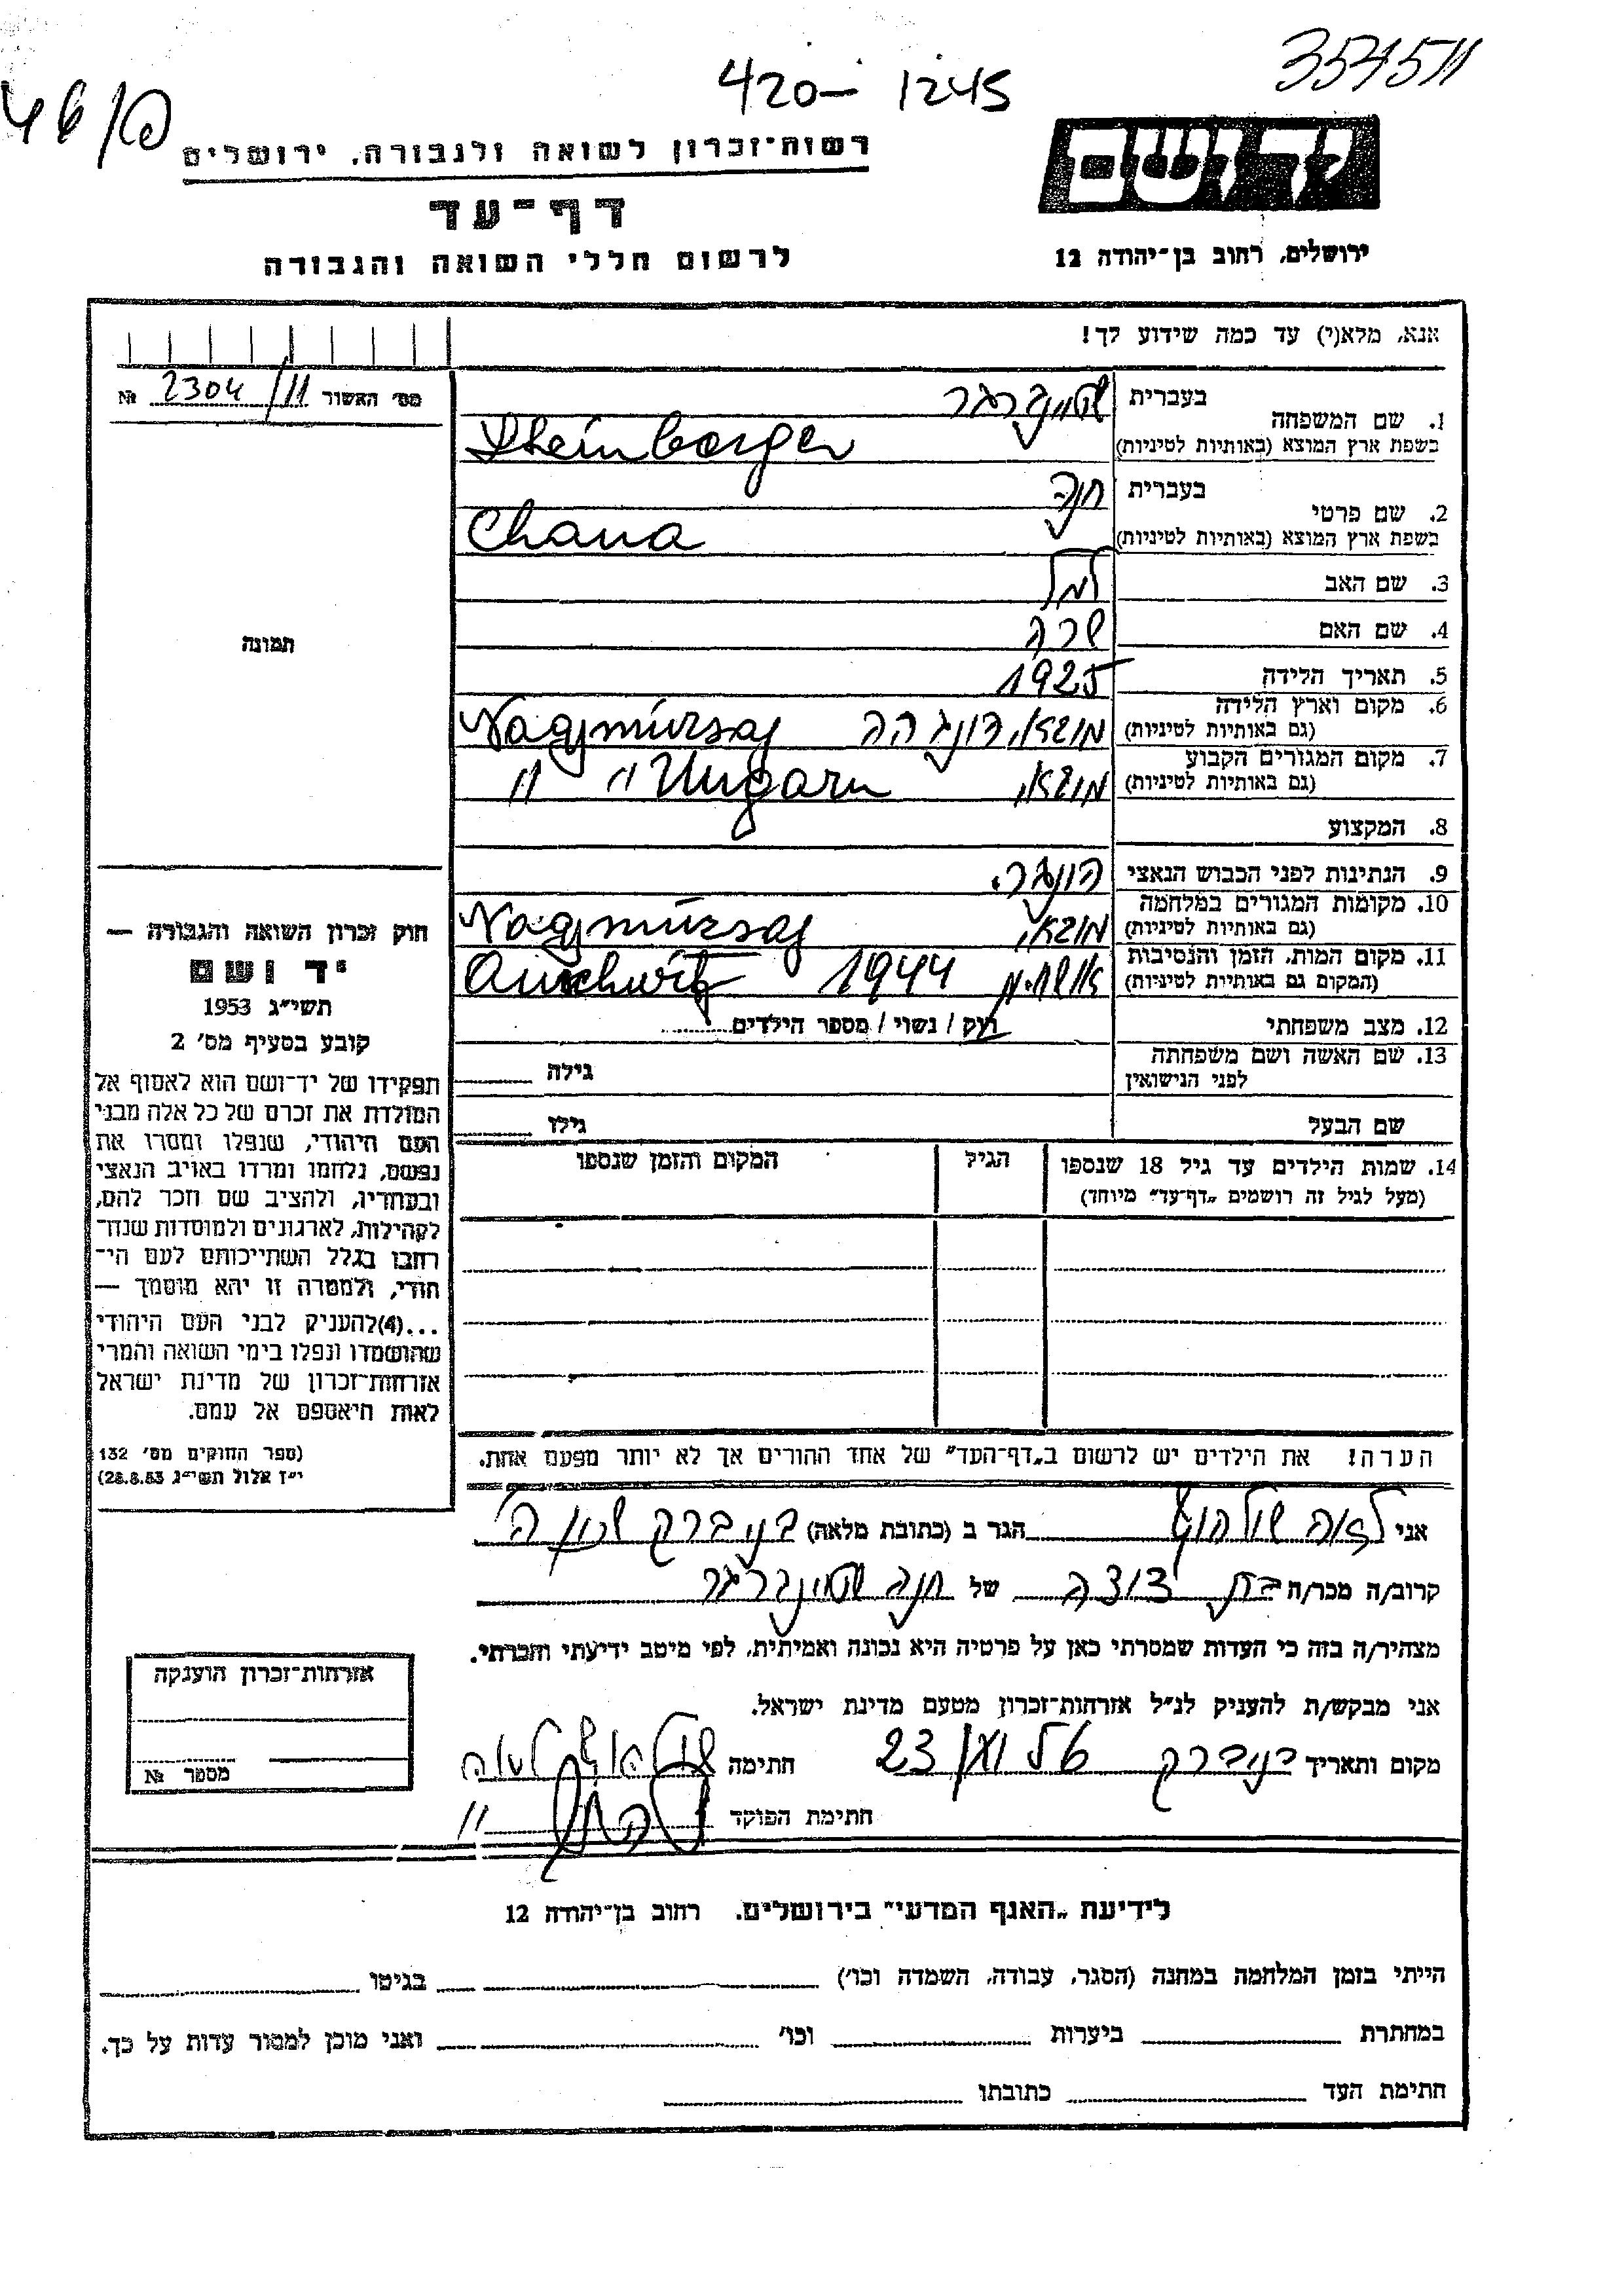 35451/11
420— 1245
46/פ
יד ושם
רשות־זכרון לשואה ולגבורה, ירושלים
דף־עד
לרשום חללי השואה והגבורה
ירושלים, רחוב בן־יהודה 12
אנא, מלא(י) עד כמה שידוע לך!
מס׳ האשור 2304/11 №
תמונה
1. שם המשפחה
בעברית שטינברגר
בשפת ארץ המוצא (באותיות לטיניות) Steinberger
2. שם פרטי
בעברית חנה
בשפת ארץ המוצא (באותיות לטיניות) Chana
3. שם האב למל
4. שם האם שרה
5. תאריך הלידה 1925
6. מקום וארץ הלידה
(גם באותיות לטיניות)
7. מקום המגורים הקבוע
(גם באותיות לטיניות) " " Ungarn
8. המקצוע
9. הנתינות לפני הכבוש הנאצי הונגרי
10. מקומות המגורים במלחמה
(גם באותיות לטיניות)
11. מקום המות, הזמן והנסיבות
(המקום גם באותיות לטיניות) 1944 Auschwitz
12. מצב משפחתי רוק / נשוי / מספר הילדים
13. שם האשה ושם משפחתה
לפני הנישואין גילה
שם הבעל גילו
14. שמות הילדים עד גיל 18 שנספו הגיל המקום והזמן שנספו
(מעל לגיל זה רושמים „דף־עד” מיוחד)
הערה! את הילדים יש לרשום ב„דף־העד” של אחד ההורים אך לא יותר מפעם אחת.
חוק זכרון השואה והגבורה —
יד ושם
תשי״ג 1953
קובע בסעיף מס׳ 2
תפקידו של יד־ושם הוא לאסוף אל
המולדת את זכרם של כל אלה מבני
העם היהודי, שנפלו ומסרו את
נפשם, נלחמו ומרדו באויב הנאצי
ובעוזריו, ולהציב שם וזכר להם,
לקהילות, לארגונים ולמוסדות שנח־
רבו בגלל השתייכותם לעם הי־
הודי, ולמטרה זו יהא מוסמך —
...(4)להעניק לבני העם היהודי
שהושמדו ונפלו בימי השואה והמרי
אזרחות־זכרון של מדינת ישראל
לאות היאספם אל עמם.
(ספר החוקים מס׳ 132
י״ז אלול תשי״ג 28.8.53)
אני לאה הגר ב (כתובת מלאה) בני ברק
קרוב/ה מכר/ה בת דודה של חנה שטינברגר
מצהיר/ה בזה כי העדות שמסרתי כאן על פרטיה היא נכונה ואמיתית, לפי מיטב ידיעתי והכרתי.
אני מבקש/ת להעניק לנ״ל אזרחות־זכרון מטעם מדינת ישראל.
מקום ותאריך בני ברק 23 חתימה
חתימת הפוקד
אזרחות־זכרון הוענקה
מספר №
לידיעת „האגף המדעי” בירושלים. רחוב בן־יהודה 12
הייתי בזמן המלחמה במחנה (הסגר, עבודה, השמדה וכו׳) בגיטו
במחתרת ביערות וכו׳ ואני מוכן למסור עדות על כך.
חתימת העד כתובתו